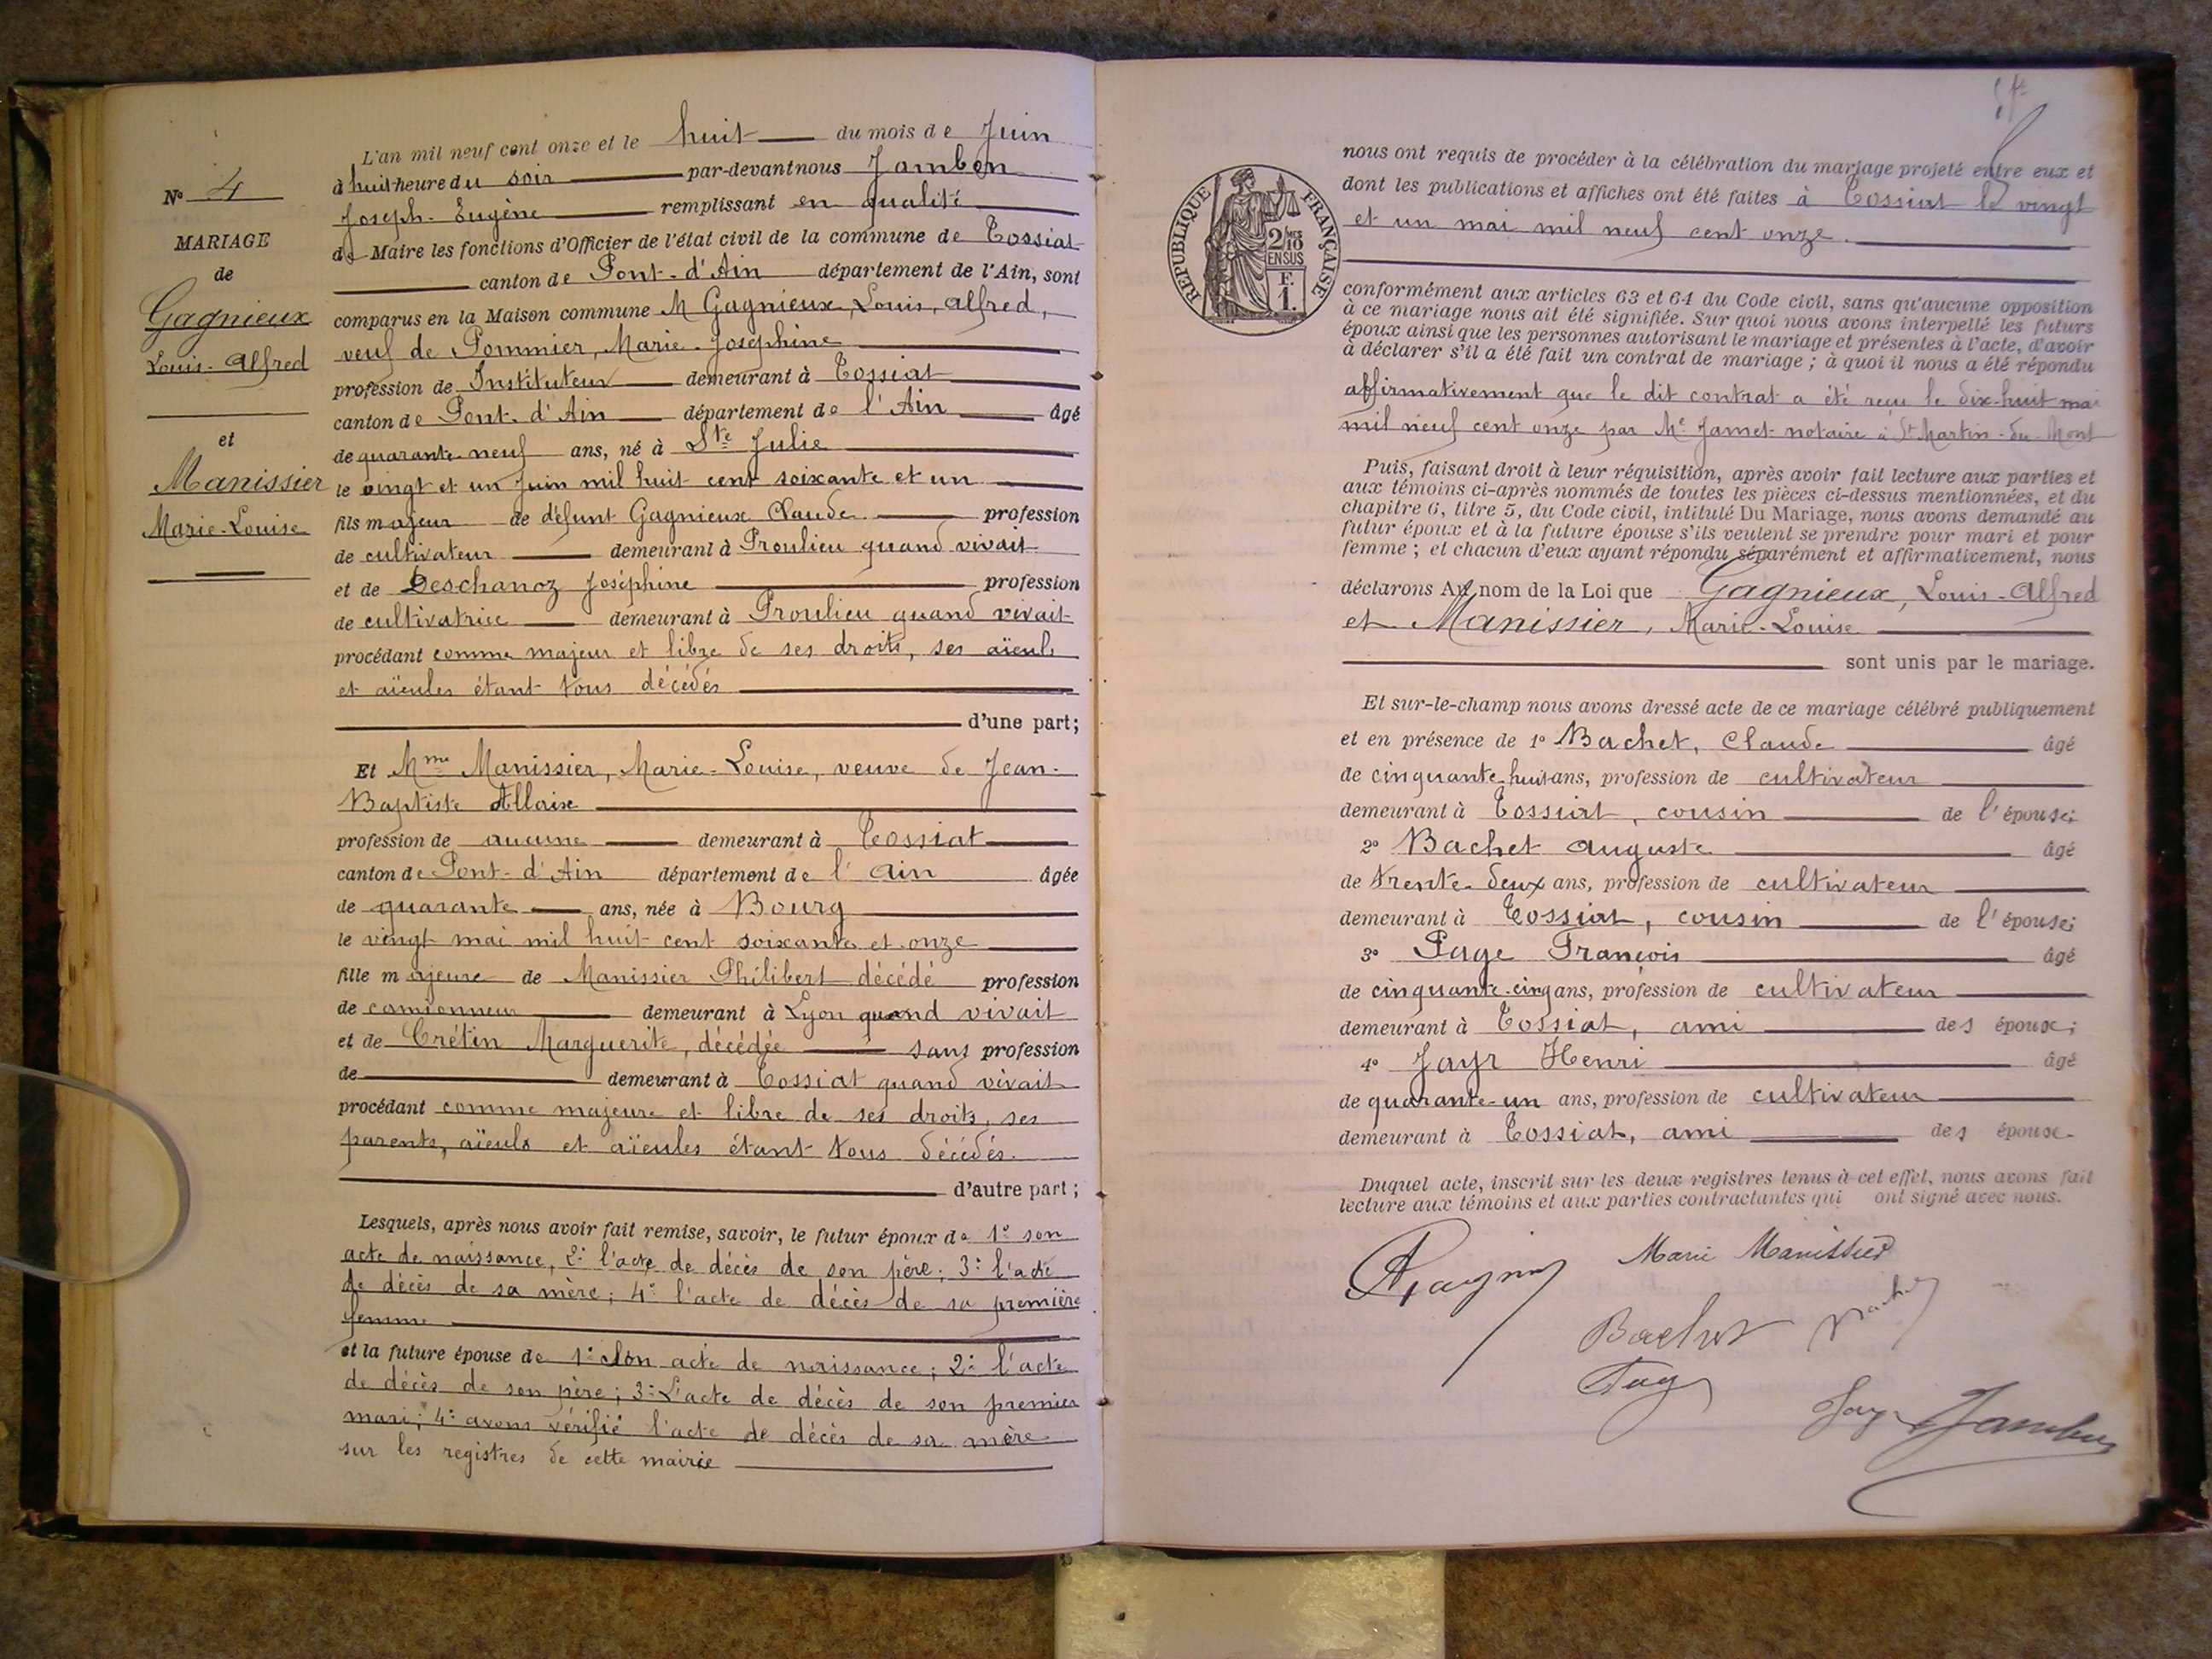 N° 4
MARIAGE
de
Gagnieux
Louis-Alfred
et
Manissier
Marie-Louise
L'an mil neuf cent onze et le huit du mois de Juin
à huit heure du soir par-devant nous Jambon
Joseph-Eugène remplissant en qualité
de Maire les fonctions d'Officier de l'état civil de la commune de Tossiat
canton de Pont-d'Ain département de l'Ain, sont
comparus en la Maison commune M Gagnieux, Louis, Alfred,
veuf de Pommier, Marie-Joséphine
profession de Instituteur demeurant à Tossiat
canton de Pont-d'Ain département de l'Ain âgé
de quarante-neuf ans, né à Ste Julie
le vingt et un Juin mil huit cent soixante et un
fils majeur de défunt Gagnieux Claude profession
de cultivateur demeurant à Proulieu quand vivait
et de Deschanoz Joséphine profession
de cultivatrice demeurant à Proulieu quand vivait
procédant comme majeur et libre de ses droits, ses aïeuls
et aïeules étant tous décédés
d'une part;
Et Mme Manissier, Marie-Louise, veuve de Jean-
Baptiste Alloix
profession de aucune demeurant à Tossiat
canton de Pont-d'Ain département de l'Ain âgée
de quarante ans, née à Bourg
le vingt mai mil huit cent soixante et onze
fille majeure de Manissier Philibert décédé profession
de camionneur demeurant à Lyon quand vivait
et de Crétin Marguerite, décédée sans profession
de demeurant à Tossiat quand vivait
procédant comme majeure et libre de ses droits, ses
parents, aïeuls et aïeules étant tous décédés.
d'autre part;
Lesquels, après nous avoir fait remise, savoir, le futur époux de 1° son
acte de naissance, 2° l'acte de décès de son père; 3° l'acte
de décès de sa mère; 4° l'acte de décès de sa première
femme
et la future épouse de 1° son acte de naissance; 2° l'acte
de décès de son père; 3° L'acte de décès de son premier
mari; 4° avons vérifié l'acte de décès de sa mère
sur les registres de cette mairie
RÉPUBLIQUE FRANÇAISE
2/10
EN SUS
F.
1.
nous ont requis de procéder à la célébration du mariage projeté entre eux et
dont les publications et affiches ont été faites à Tossiat le vingt
et un mai mil neuf cent onze.
conformément aux articles 63 et 64 du Code civil, sans qu'aucune opposition
à ce mariage nous ait été signifiée. Sur quoi nous avons interpellé les futurs
époux ainsi que les personnes autorisant le mariage et présentes à l'acte, d'avoir
à déclarer s'il a été fait un contrat de mariage; à quoi il nous a été répondu
affirmativement que le dit contrat a été reçu le dix-huit mai
mil neuf cent onze par Me Jamet notaire à St Martin-du-Mont
Puis, faisant droit à leur réquisition, après avoir fait lecture aux parties et
aux témoins ci-après nommés de toutes les pièces ci-dessus mentionnées, et du
chapitre 6, titre 5, du Code civil, intitulé Du Mariage, nous avons demandé au
futur époux et à la future épouse s'ils veulent se prendre pour mari et pour
femme; et chacun d'eux ayant répondu séparément et affirmativement, nous
déclarons Au nom de la Loi que Gagnieux, Louis-Alfred
et Manissier, Marie-Louise
sont unis par le mariage.
Et sur-le-champ nous avons dressé acte de ce mariage célébré publiquement
et en présence de 1° Bachet, Claude âgé
de cinquante-huit ans, profession de cultivateur
demeurant à Tossiat, cousin de l'épouse;
2° Bachet Auguste âgé
de trente-deux ans, profession de cultivateur
demeurant à Tossiat, cousin de l'épouse;
3° Page François âgé
de cinquante-cinq ans, profession de cultivateur
demeurant à Tossiat, ami des époux;
4° Jayr Henri âgé
de quarante-un ans, profession de cultivateur
demeurant à Tossiat, ami des époux.
Duquel acte, inscrit sur les deux registres tenus à cet effet, nous avons fait
lecture aux témoins et aux parties contractantes qui ont signé avec nous.
Marie Manissier
Bachet Bachet
Page
Jayr Jambon